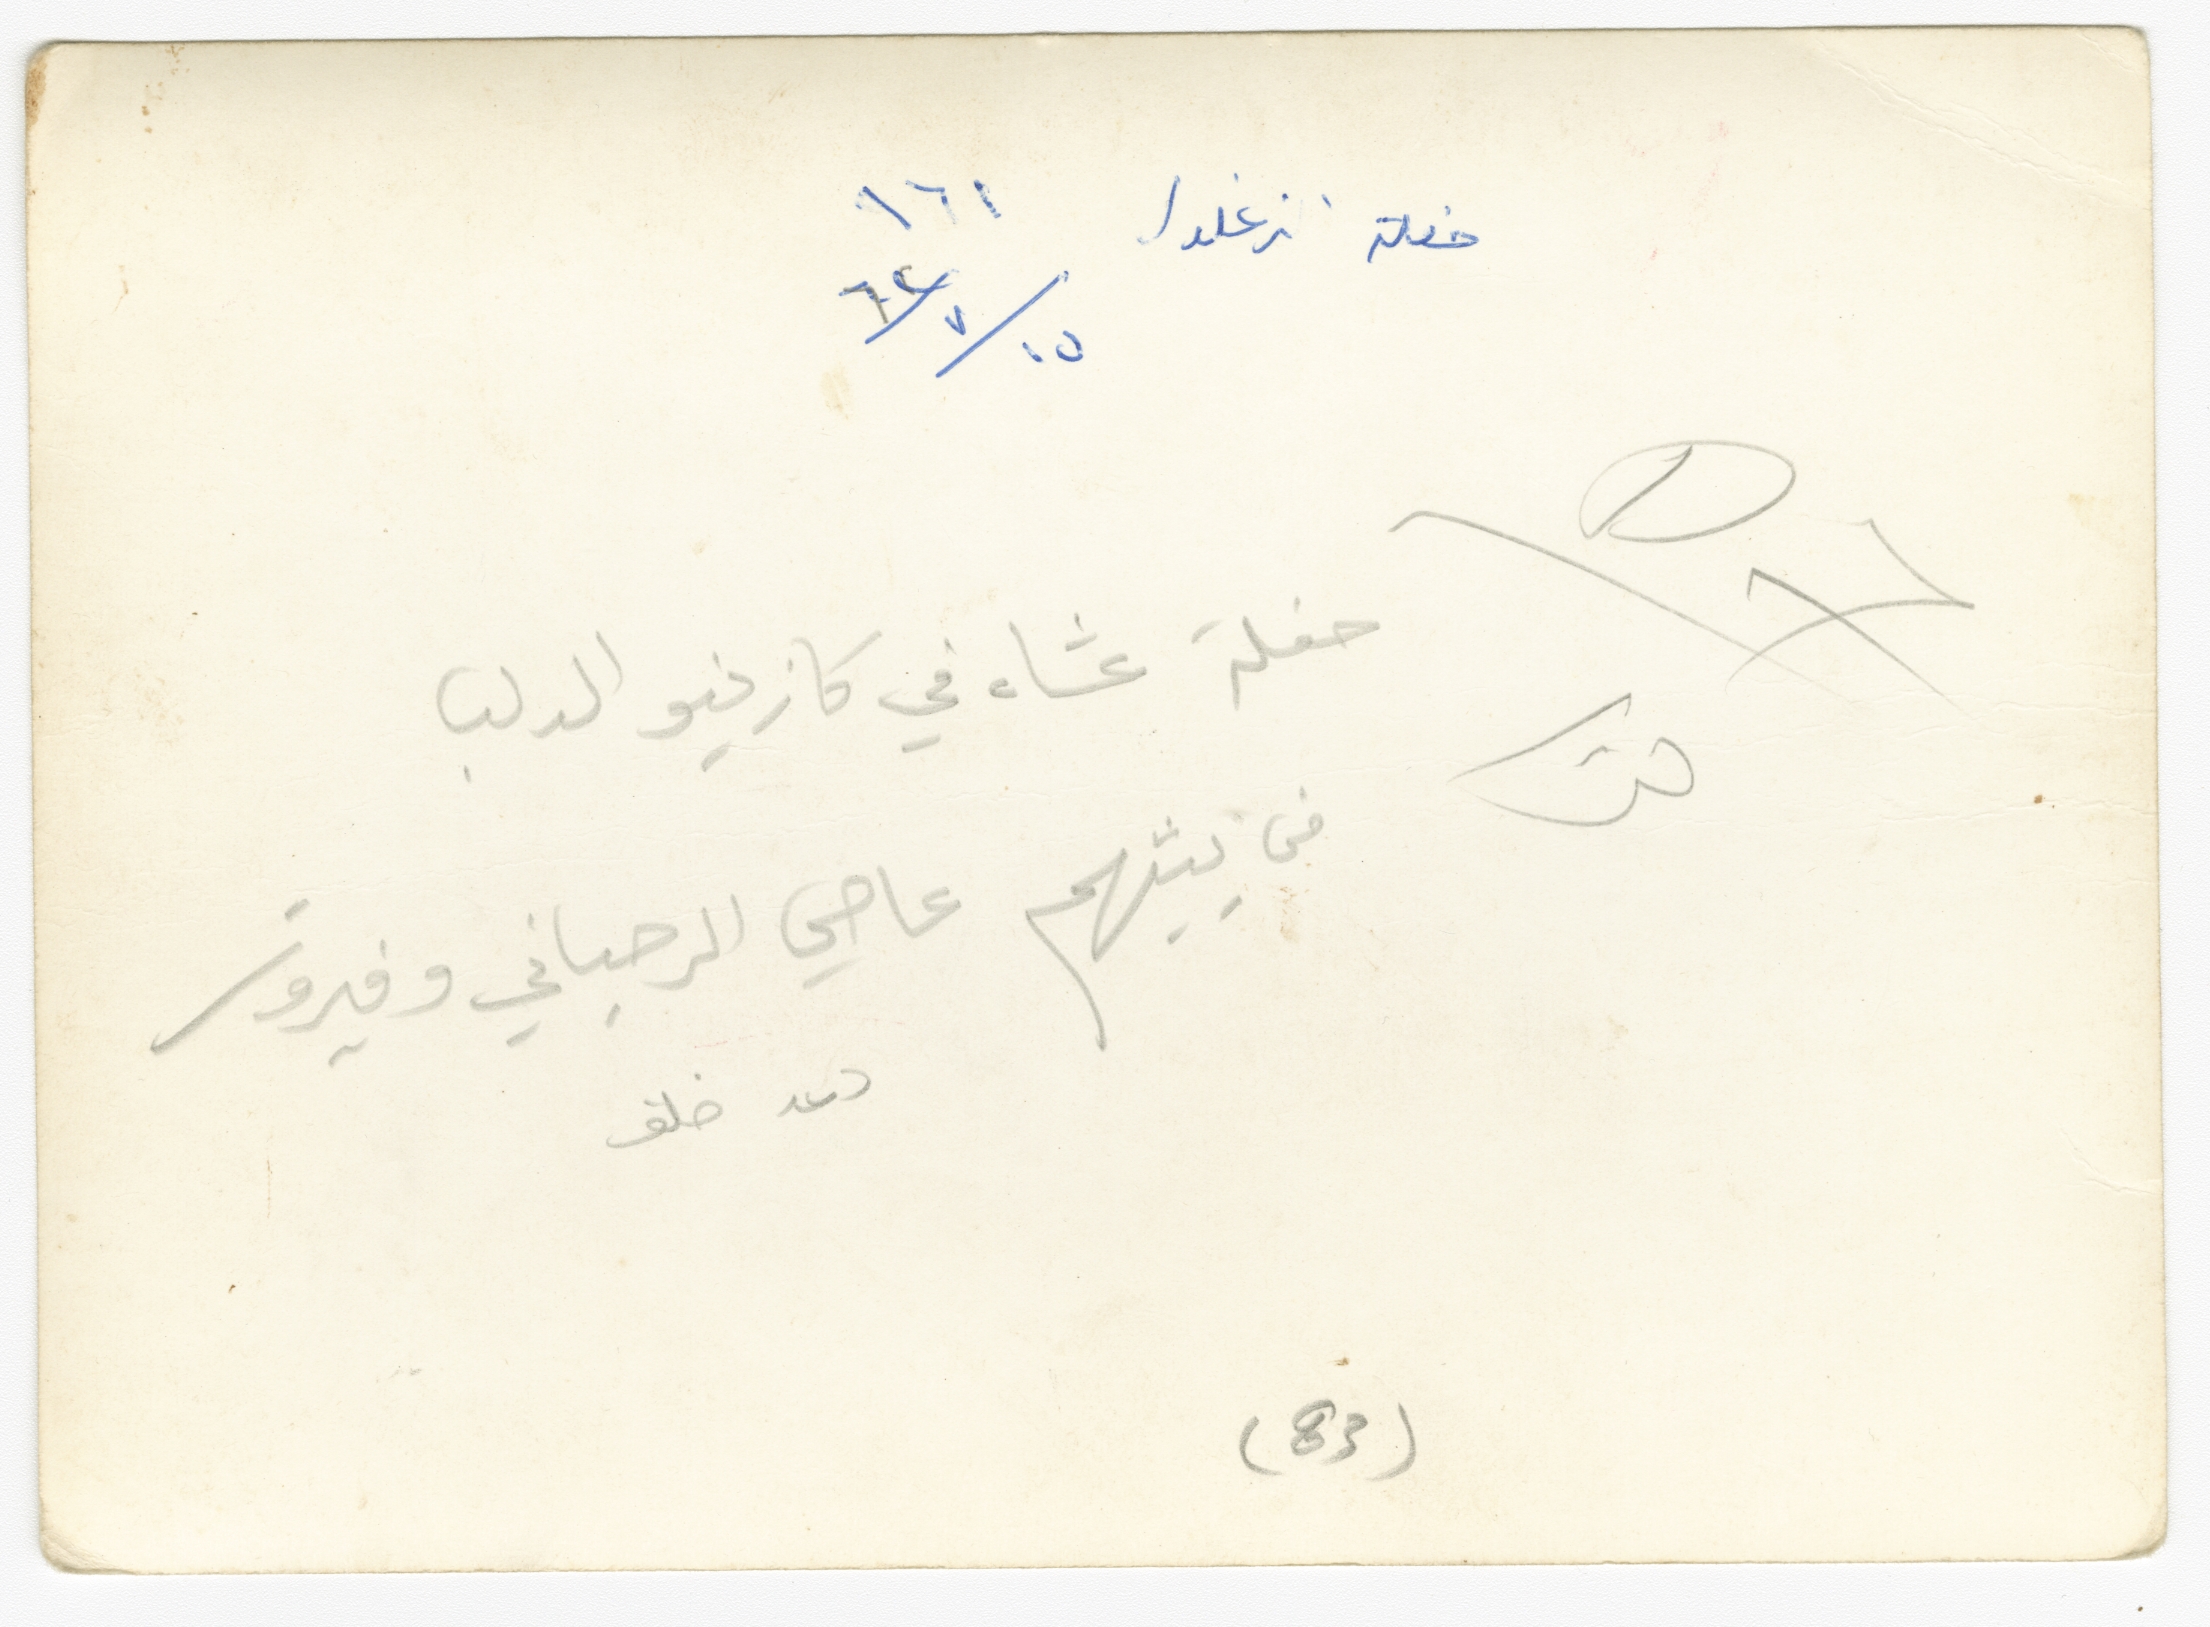 حفلة زغلول ١٦١
١٥/٧/٦٢
حفلة عشاء في كازينو الدلب
من بينهم عاصي الرحباني وفيروز
دعد خلف
(83)